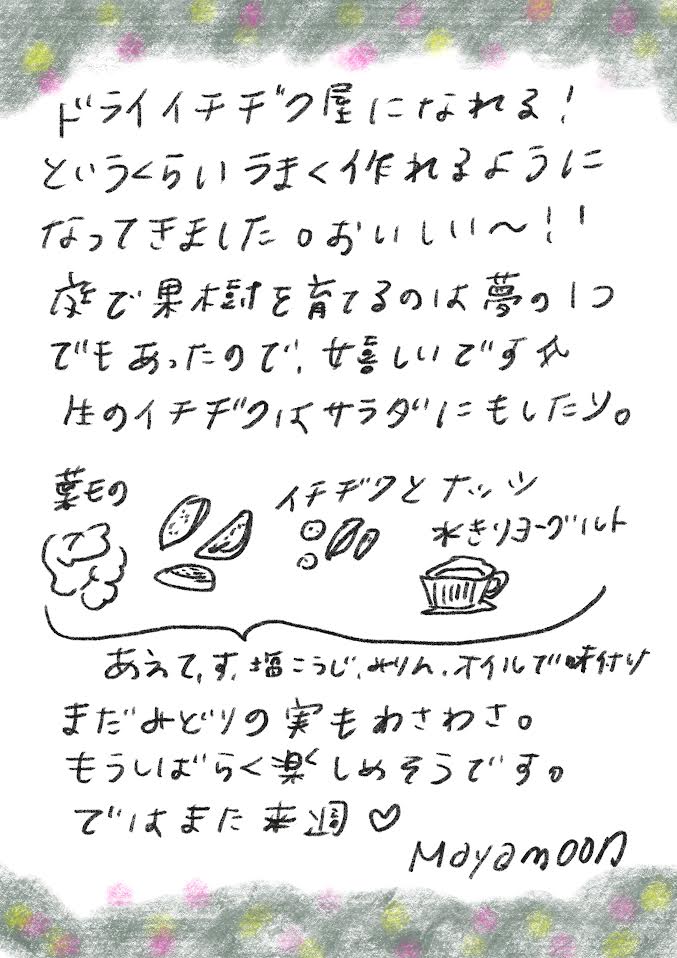 ドライイチヂク屋になれる!
というくらいうまく作れるように
なってきました。おいしい〜!!
庭で果樹を育てるのは夢の1つ
でもあったので、嬉しいです☆
生のイチヂクはサラダにもしたり。
葉もの
イチヂクとナッツ
水きりヨーグルト
あえて、す、塩こうじ、みりん、オイルで味付け
まだみどりの実もわさわさ。
もうしばらく楽しめそうです。
ではまた来週♡
Mayamoon